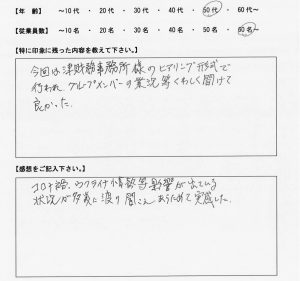 【年　齢】　～10代　・　20代　・　30代　・　40代　・　50代　・　60代～
【従業員数】　～10名　・　20名　・　30名　・　40名　・　50名　・　60名～
【特に印象に残った内容を教えて下さい。】
今回は津財務事務所様のヒアリング形式で
行われ グループメンバーの業況等くわしく聞けて
良かった.
【感想をご記入下さい。】
コロナ禍、ウクライナ情勢等影響が出ている
状況が多義に渡り聞こえ あらためて実感した.